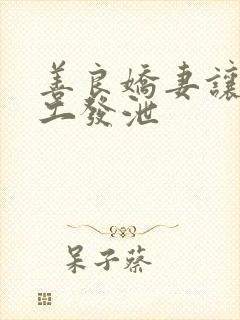 善良嬌妻讓
工發泄
呆子蔡